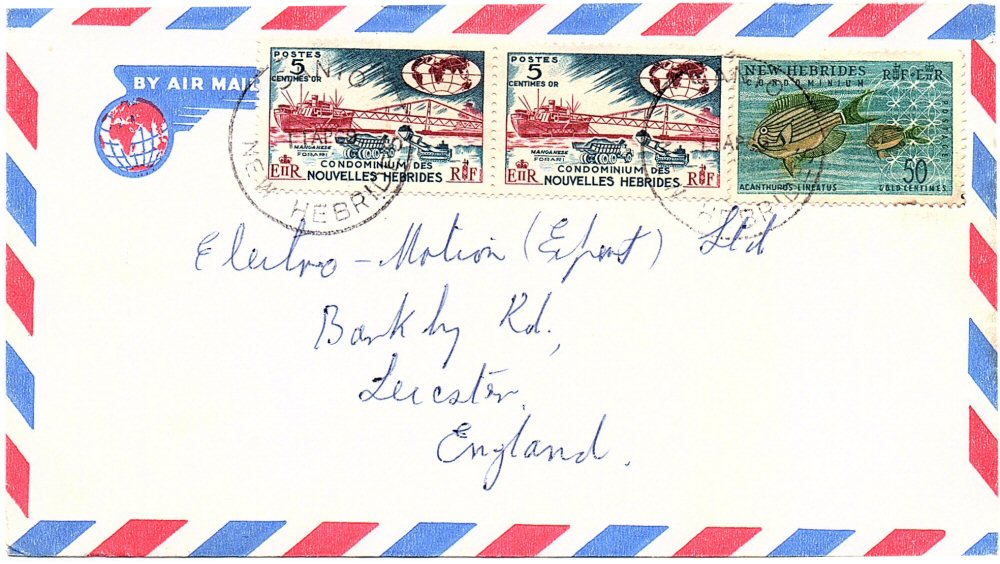 BY AIR MAIL
POSTES
5
CENTIMES OR
MANGANESE
FORARI
CONDOMINIUM DES
EIIR NOUVELLES HEBRIDES RF
POSTES
5
CENTIMES OR
MANGANESE
FORARI
CONDOMINIUM DES
EIIR NOUVELLES HEBRIDES RF
NEW HEBRIDES RF·EIIR
CONDOMINIUM
POSTAGE
50
ACANTHURUS LINEATUS GOLD CENTIMES
NEW HEBRIDES
HEBRID
Electro - Motion (Export) Ltd
Barkby Rd,
Leicester,
England.